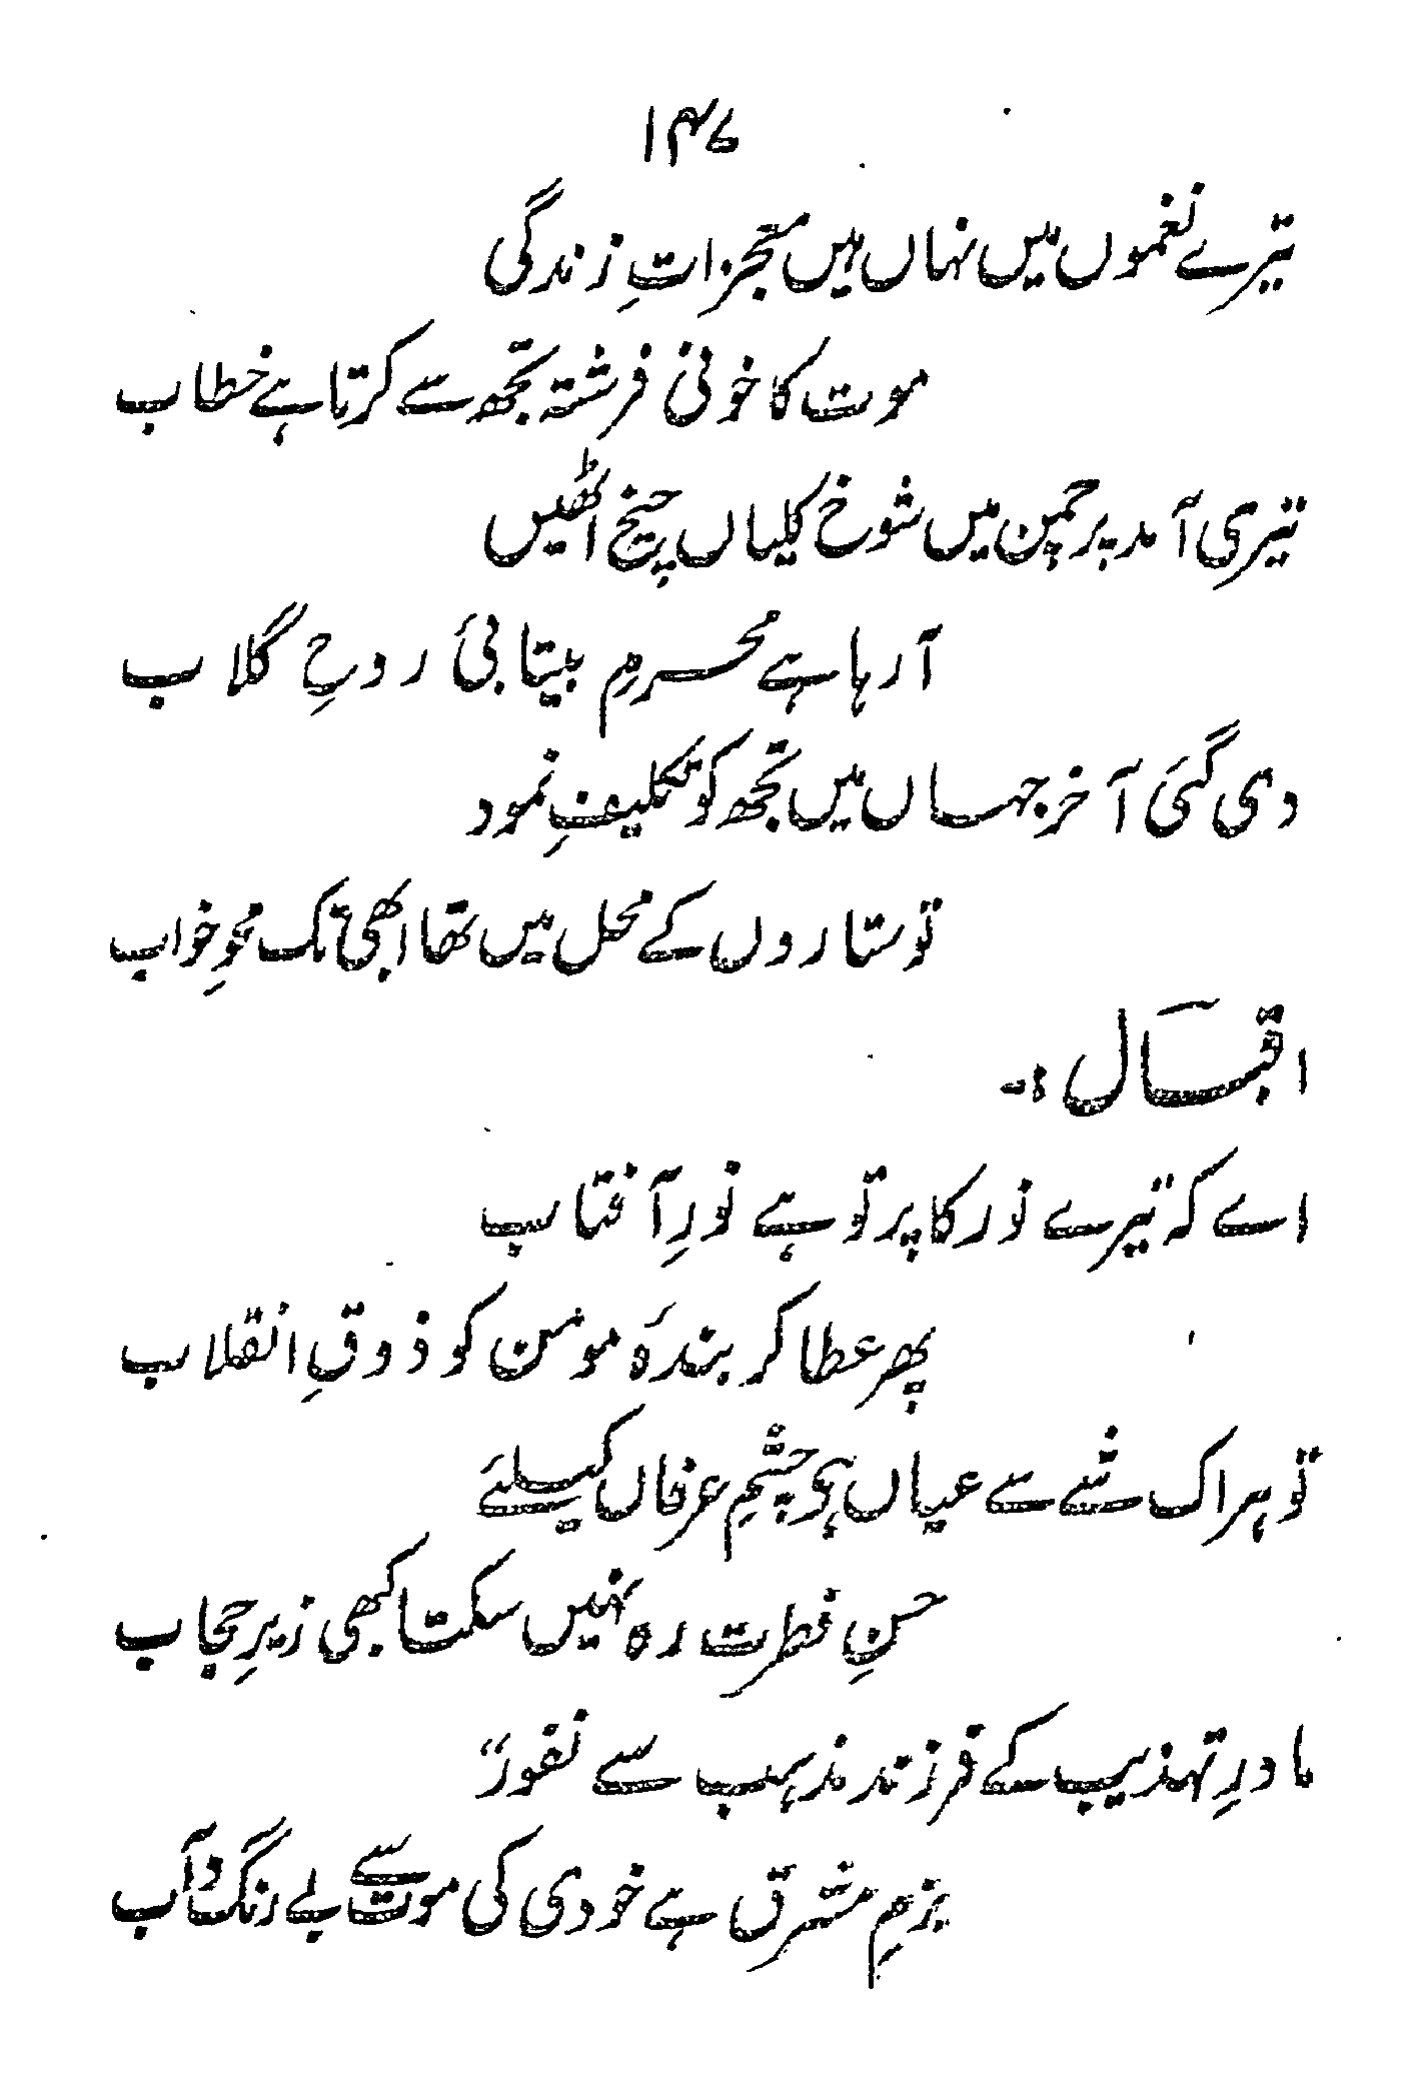 ۱۴۶
تیرے نغموں میں نہاں ہیں معجزاتِ زندگی
موت کا خونی فرشتہ تجھ سے کرتا ہے خطاب
تیری آمد پر چمن میں شوخ کلیاں چیخ اٹھیں
آ رہا ہے محرمِ بیتابیٔ روحِ گلاب
دی گئی آخر جہاں میں تجھ کو تکلیفِ نمود
تو ستاروں کے محل میں تھا ابھی تک محوِ خواب
اقبال :-
اے کہ تیرے نور کا پرتو ہے نورِ آفتاب
پھر عطا کر بندۂ مومن کو ذوقِ انقلاب
تو ہر اک شے سے عیاں ہو چشمِ عرفاں کیلئے
حسنِ فطرت رہ نہیں سکتا کبھی زیرِ حجاب
مادرِ تہذیب کے فرزند مذہب سے نفور“
بزمِ مشرق ہے خودی کی موت سے بے رنگ و آب